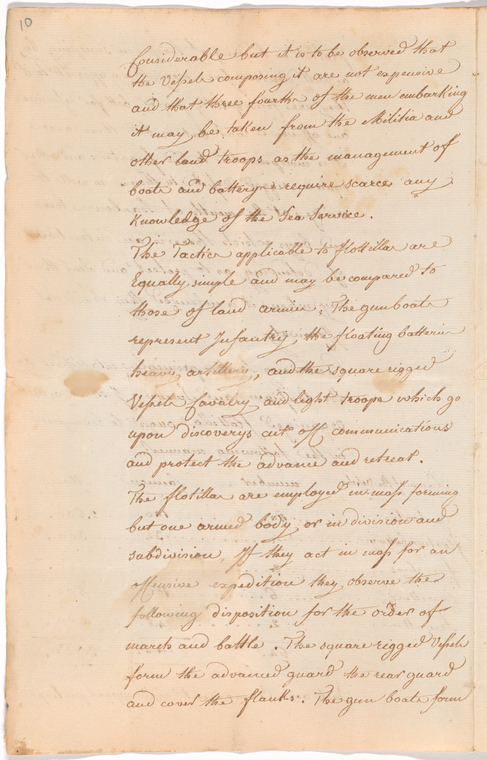 10
Considerable but it is to be observed that
the Vessels composing it are not expensive
and that three fourths of the men embarking
it may be taken from the Militia and
other land troops as the management of
boats and batterys require scarce any
Knowledge of the Sea Service.
The Tactics applicable to flottillas are
Equally simple and may be compared to
those of land armies: The gun boats
represent Infantry, the floating batteries
heavy artillery, and the square rigged
Vessels Cavalry and light troops which go
upon discoverys cut off communications
and protect the advance and retreat.
The flotillas are employed in mass forming
but one armed body, or in division and
subdivision. If they act in mass for an
offensive expedition they observe the
following disposition for the order of
march and battle. The square rigged Vessels
form the advanced guard the rear guard
and cover the flanks. The gun boats form